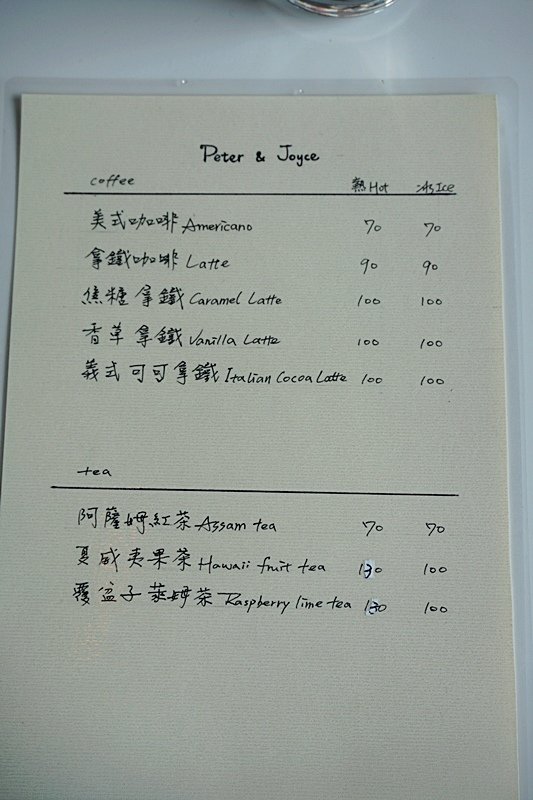 Peter & Joyce
coffee 熱Hot 冰Ice
美式咖啡 Americano 70 70
拿鐵咖啡 Latte 90 90
焦糖拿鐵 Caramel Latte 100 100
香草拿鐵 Vanilla Latte 100 100
義式可可拿鐵 Italian Cocoa Latte 100 100
tea
阿薩姆紅茶 Assam tea 70 70
夏威夷果茶 Hawaii fruit tea 130 100
覆盆子萊姆茶 Raspberry lime tea 130 100